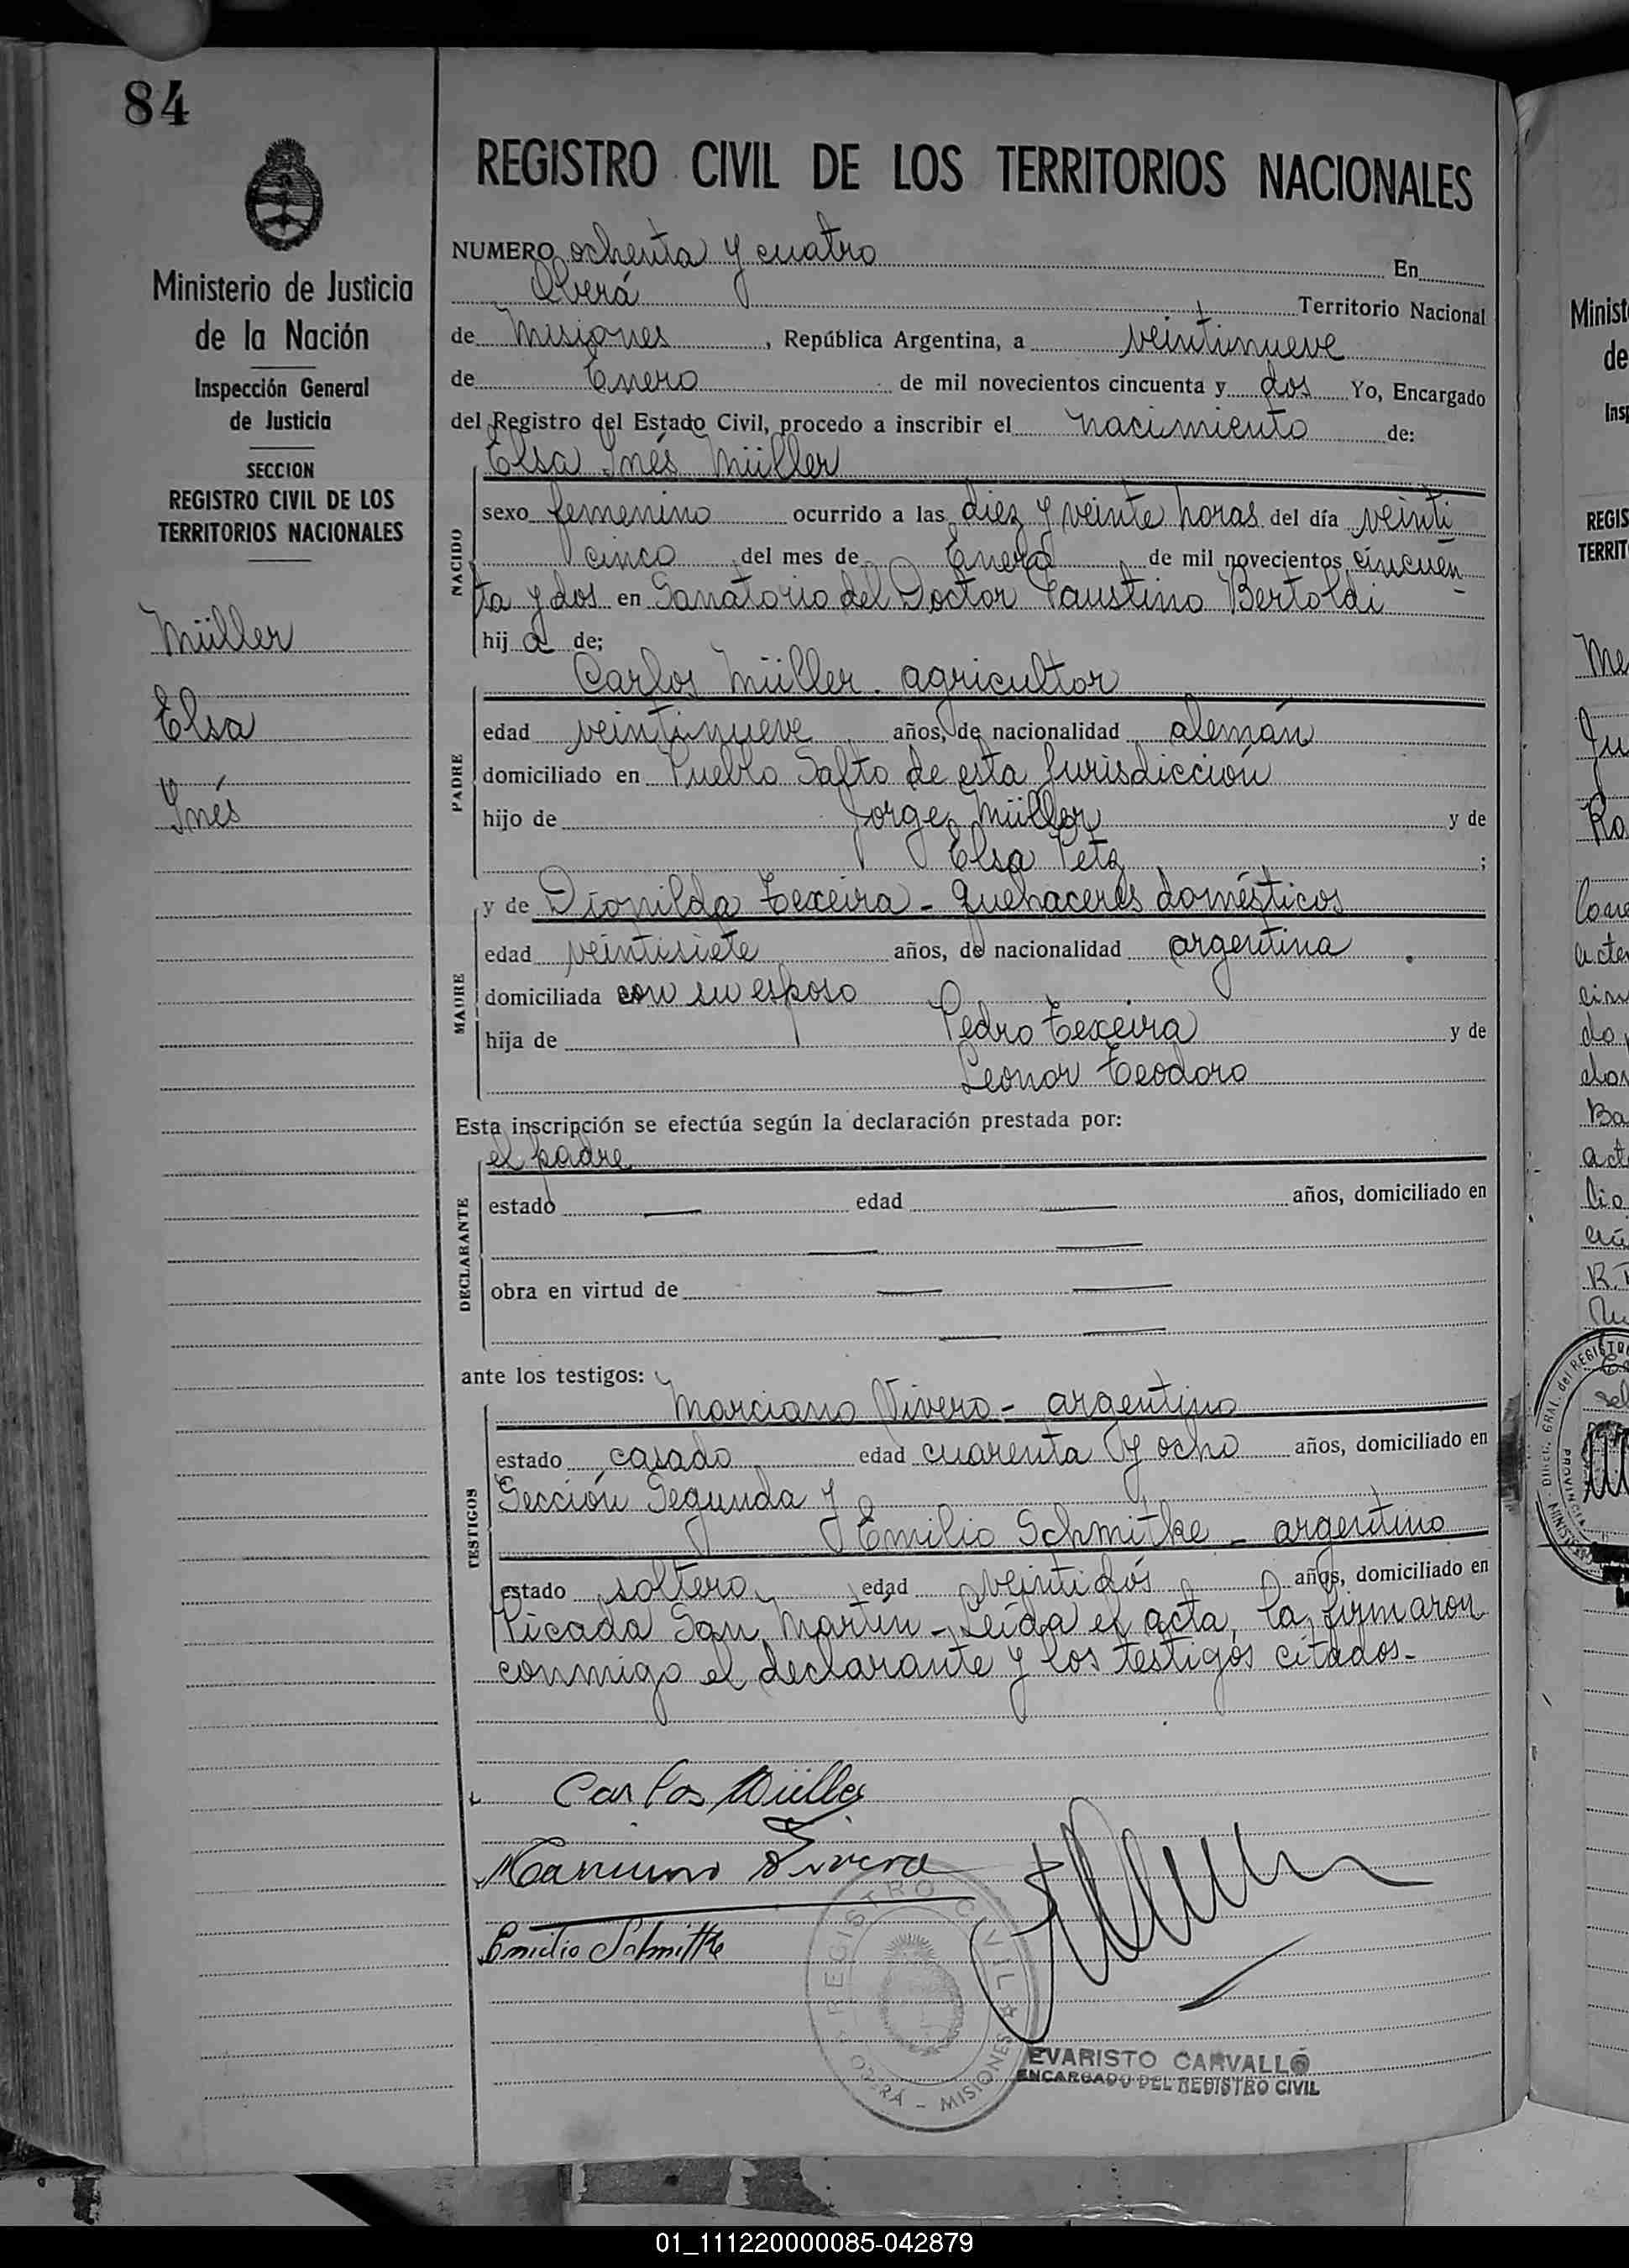 84
REGISTRO CIVIL DE LOS TERRITORIOS NACIONALES
Ministerio de Justicia
de la Nación
Inspección General
de Justicia
SECCION
REGISTRO CIVIL DE LOS
TERRITORIOS NACIONALES
Müller
Elsa
Inés
NUMERO ochenta y cuatro En
Oberá Territorio Nacional
de Misiones, República Argentina, a veintinueve
de Enero de mil novecientos cincuenta y dos Yo, Encargado
del Registro del Estado Civil, procedo a inscribir el nacimiento de:
Elsa Inés Müller
NACIDO
sexo femenino ocurrido a las diez y veinte horas del día veinti
cinco del mes de Enero de mil novecientos cincuen
ta y dos en Sanatorio del Doctor Faustino Bertoldi
hij a de;
Carlos Müller. agricultor
PADRE
edad veintinueve años, de nacionalidad alemán
domiciliado en Pueblo Salto de esta Jurisdicción
hijo de Jorge Müller y de
Elsa Petz;
y de Dionilda Texeira - quehaceres domésticos
MADRE
edad veintisiete años, de nacionalidad argentina
domiciliada con su esposo
hija de Pedro Texeira y de
Leonor Teodoro
Esta inscripción se efectúa según la declaración prestada por:
el padre
DECLARANTE
estado edad años, domiciliado en
obra en virtud de
ante los testigos:
Marciano Vivero - argentino
TESTIGOS
estado casado edad cuarenta y ocho años, domiciliado en
Sección Segunda y
Emilio Schmitke - argentino
estado soltero edad veintidós años, domiciliado en
Picada San Martín - Leída el acta, la firmaron
conmigo el declarante y los testigos citados.-
Carlos Müller
Marciano Vivero
Emilio Schmittke
REGISTRO CIVIL
OBERÁ - MISIONES
EVARISTO CARVALLO
ENCARGADO DEL REGISTRO CIVIL
01_111220000085-042879